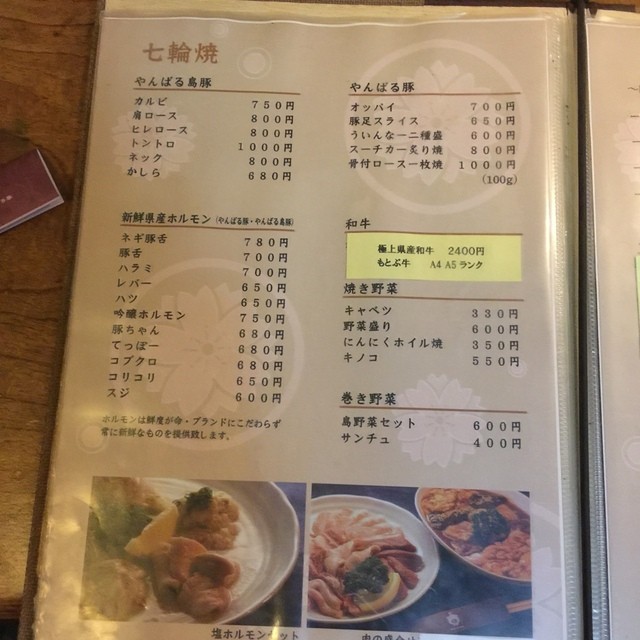 七輪焼
やんばる島豚
カルビ 750円
肩ロース 800円
ヒレロース 800円
トントロ 1000円
ネック 800円
かしら 680円
新鮮県産ホルモン (やんばる豚・やんばる島豚)
ネギ豚舌 780円
豚舌 700円
ハラミ 700円
レバー 650円
ハツ 650円
吟醸ホルモン 750円
豚ちゃん 680円
てっぽー 680円
コブクロ 680円
コリコリ 650円
スジ 600円
ホルモンは鮮度が命・ブランドにこだわらず
常に新鮮なものを提供致します。
やんばる豚
オッパイ 700円
豚足スライス 650円
ういんなー二種盛 600円
スーチカー炙り焼 800円
骨付ロース一枚焼 1000円
(100g)
和牛
極上県産和牛 2400円
もとぶ牛 A4 A5 ランク
焼き野菜
キャベツ 330円
野菜盛り 600円
にんにくホイル焼 350円
キノコ 550円
巻き野菜
島野菜セット 600円
サンチュ 400円
塩ホルモンセット